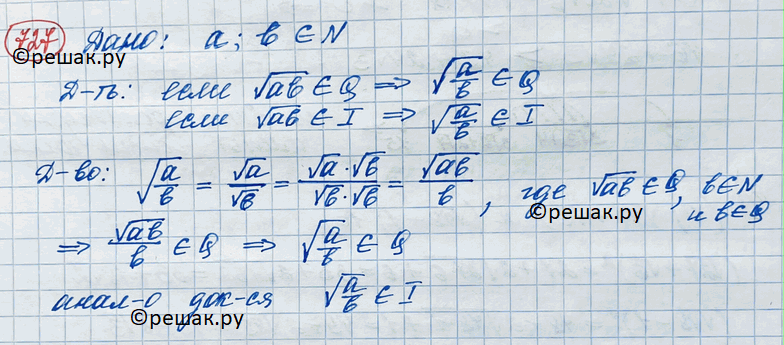 727 Дано: a; b ∈ N
©решак.ру
Д-ть: если √ab ∈ Q ⇒ √a/b ∈ Q
если √ab ∈ I ⇒ √a/b ∈ I
Д-во: √a/b = √a/√b = √a·√b/√b·√b = √ab/b, где √ab ∈ Q, b∈N
и b∈Q
©решак.ру
⇒ √ab/b ∈ Q ⇒ √a/b ∈ Q
анал-о док-ся √a/b ∈ I
©решак.ру